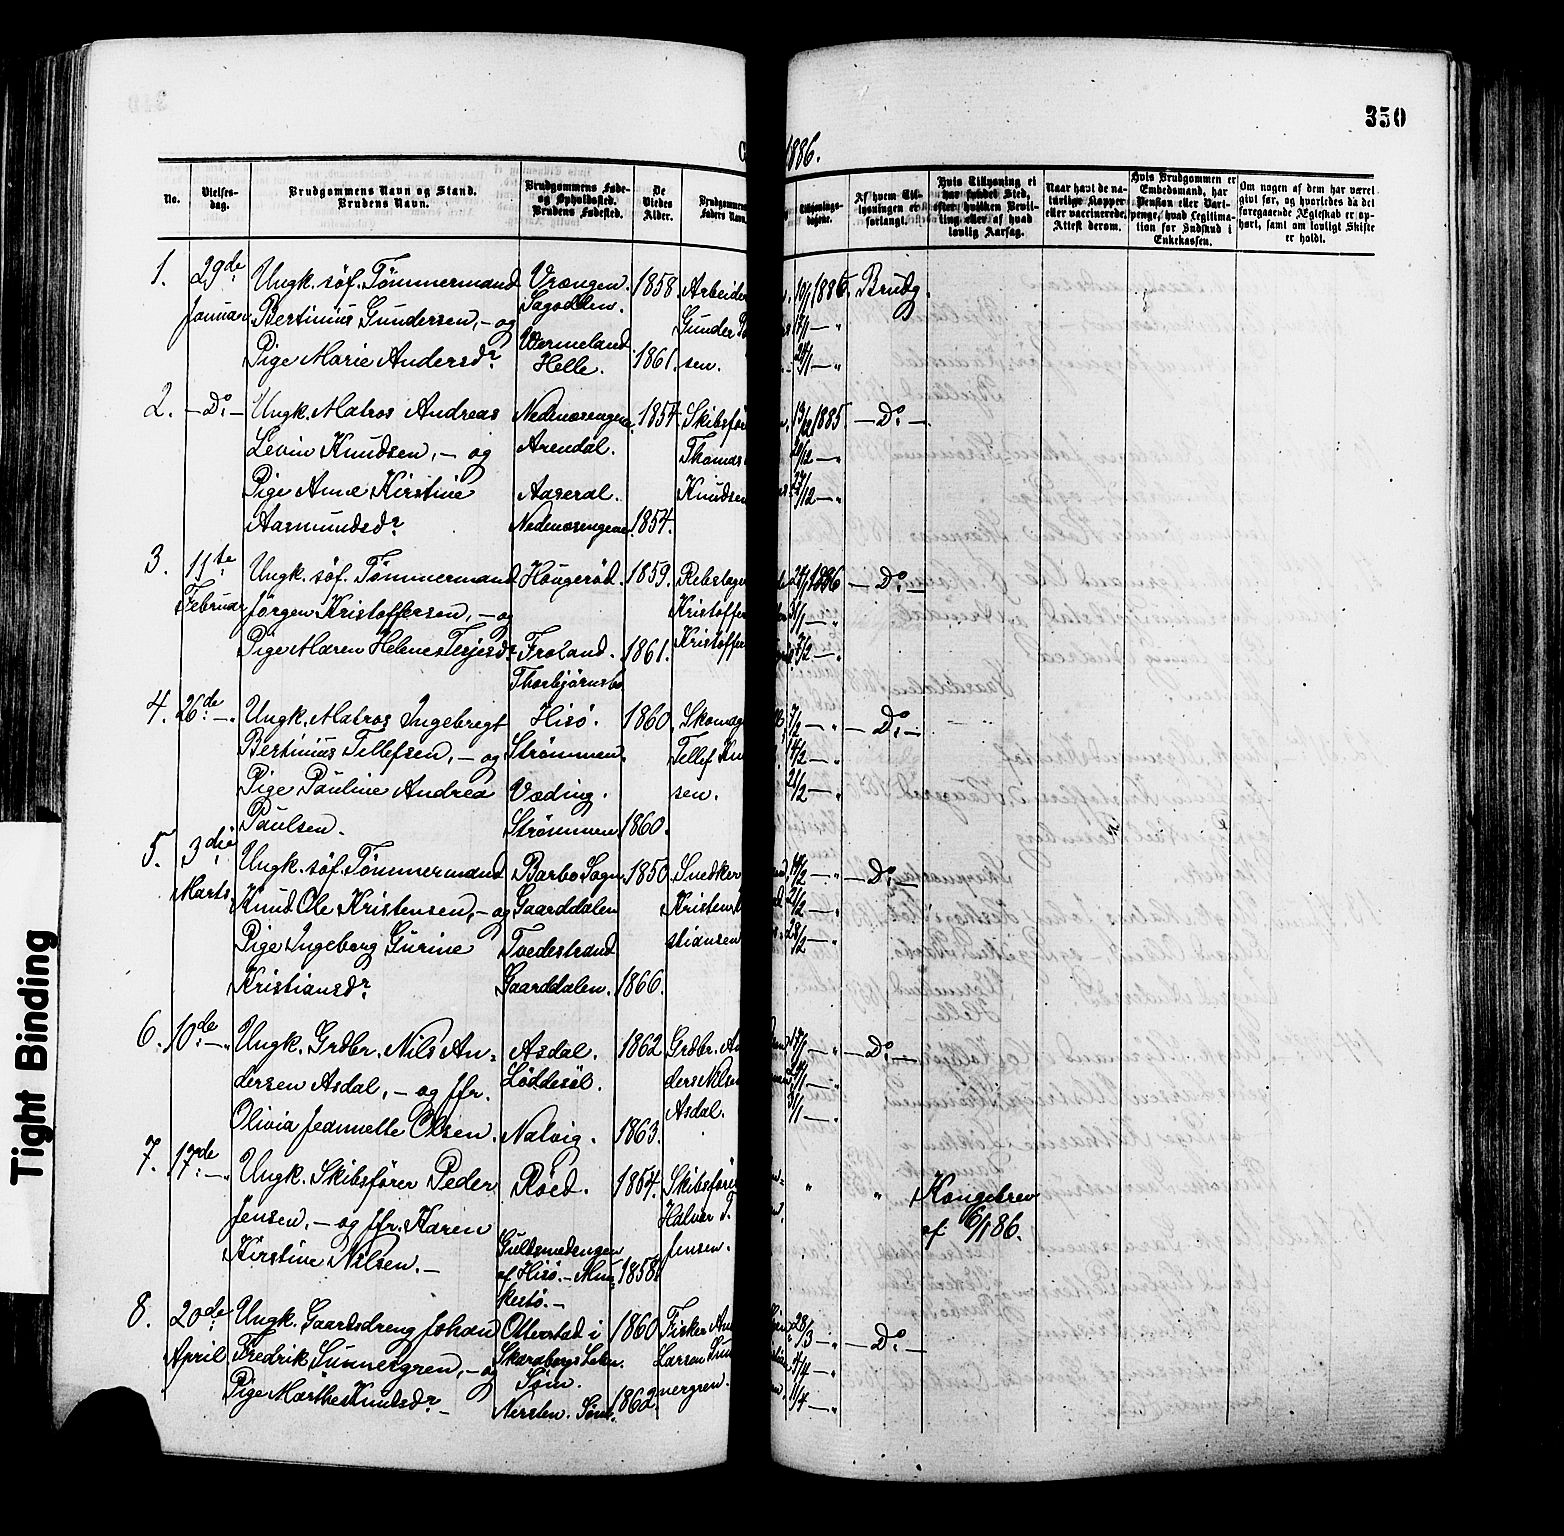 350
1886.
No.
Vielses-
dag.
Brudgommens Navn og Stand.
Brudens Navn.
Brudgommens Føde-
og Opholdssted.
Brudens Fødested.
De
Viedes
Alder.
Brudgommens
Faders Navn
Tillysnings-
dagene.
Af hvem Til-
lysningen er
forlangt.
Hvis Tillysning ei
har fundet Sted,
efter hvilken Bevil-
ling eller af hvad
lovlig Aarsag.
Naar havt de na-
turlige Kopper
eller vaccinerede,
Attest derom.
Hvis Brudgommen er
Embedsmand, har
Pension eller Vart-
penge, hvad Legitima-
tion for Indskud i
Enkekassen.
Om nogen af dem har været
givt før, og hvorledes da det
foregaaende Ægteskab er op-
hørt, samt om lovligt Skifte
er holdt.
1. 29de Ungk. søf. Tømmermand Vrængen. 1858. Arbeider 10/1 1886. Brudg.
Januar. Bertinius Gundersen, - og Sagodden. Gunder 17/1 — "
Pige Marie Andersdr. Vermeland Helle. 1861. sen. 24/1 — "
2. - Do. - Ungk. Matros Andreas Nedenæsengene. 1854. Skibsfør 13/12 1885. — Do. —
Levin Knudsen, - og Arendal. Thomas 20/12 — "
Pige Anne Kirstine Aaseral. Knudsen 27/12 — "
Aasmundsdr. Nedenæsengene. 1854.
3. 11te Ungk. søf. Tømmermand Hougerød. 1859. Rebslager 24/1 1886 — Do. —
Februar Jørgen Kristoffersen, - og Kristoffer 31/1 — "
Pige Maren Helene Terjesdr. Froland. 1861. Kristoffer 7/2 — "
Thorbjørnsbo
4. 26de —. Ungk. Matros Ingebregt Hisö. 1860. Skomag 7/2 — " — Do. —
Bertinius Tellefsen, - og Strømmen. Tellef Knu 14/2 — "
Pige Pauline Andrea Væding. sen. 21/2 — "
Paulsen. Strømmen. 1860.
5. 3die Ungk. søf. Tømmermand Barbo Sogn 1850. Snedker 14/2 — " — Do. —
Marts. Knud Ole Kristensen, - og Gaarddalen Kristen 21/2 — "
Pige Ingeborg Gurine Tvedestrand stiansen 28/2 — "
Kristiansdr. Gaarddalen. 1866.
6. 10de —. Ungk. Grdbr. Nils An- Asdal. 1862 Grdbr. An 17/1 — " — Do. —
dersen Asdal, - og Jfr. Løddesøl. ders Nilsen 24/1 — "
Olivia Jeannette Olsen. Natvig. 1863. Asdal. 31/1 — "
7. 17de —. Ungk. Skibsfører Peder Røed. 1854. Skibsfører " " Kongebrev
Jensen, - og Jfr. Karen Halvor T. af 6/1 86.
Kirstine Nilsen. — Guldsmedengen Jensen.
af Hisö. - 1858.
8. 20de Ungk. Gaardsdreng Johan Otterstad i 1860 Fisker An 28/3 — " — Do. —
April Fredrik Sunnergren, - og Skaraborgs Lehn. Larsen Sun 4/4 — "
Pige Marthe Knudsdr. — Søm. 1862. nergren. 11/4 — "
Nersten. Søm.
Tight Binding